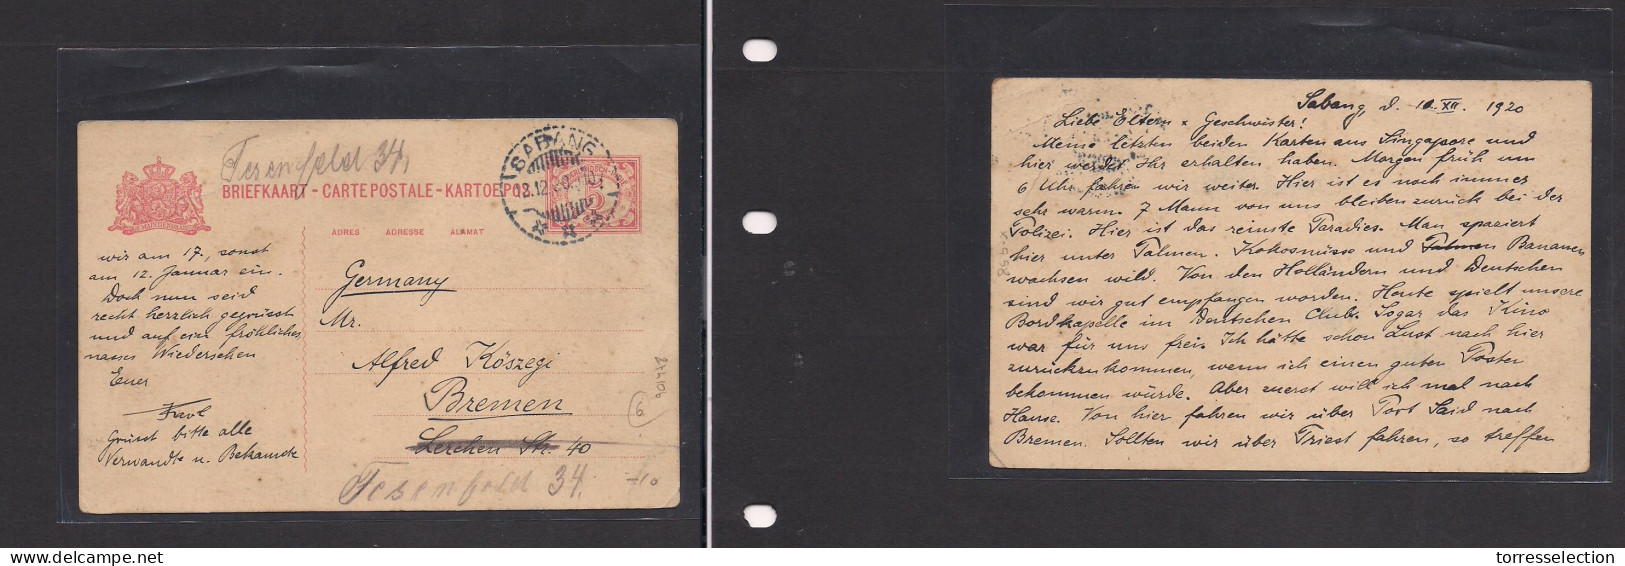 Tesenfeld 34,
BRIEFKAART - CARTE POSTALE - KARTOEPOS
SABANG
ADRES ADRESSE ALAMAT
wir am 17., sonst
am 12. Januar ein.
Doch nun seid
recht herzlich gegrüsst
und auf ein fröhliches
nasses Wiedersehen
Euer
Grüsst bitte alle
Verwandte u. Bekannte
Germany
Mr.
Alfred Köszegi
Bremen
Lerchen Str. 40
Tesenfeld 34.
6
Sabang, d. 10. XII. 1920
Liebe Eltern & Geschwister!
Meine letzten beiden Karten aus Singapore und
hier werdet Ihr erhalten haben. Morgen früh um
6 Uhr fahren wir weiter. Hier ist es noch immer
sehr warm. 7 Mann von uns bleiben zurück bei der
Polizei. Hier ist das reinste Paradies. Man spaziert
hier unter Palmen. Kokosnüsse und Palmen Bananen
wachsen wild. Von den Holländern und Deutschen
sind wir gut empfangen worden. Heute spielt unsere
Bordkapelle im Deutschen Club. Sogar das Kino
war für uns frei. Ich hätte schon Lust nach hier
zurückzukommen, wenn ich einen guten Posten
bekommen würde. Aber zuerst will ich mal nach
Hause. Von hier fahren wir über Port Said nach
Bremen. Sollten wir über Triest fahren, so treffen
torresselection